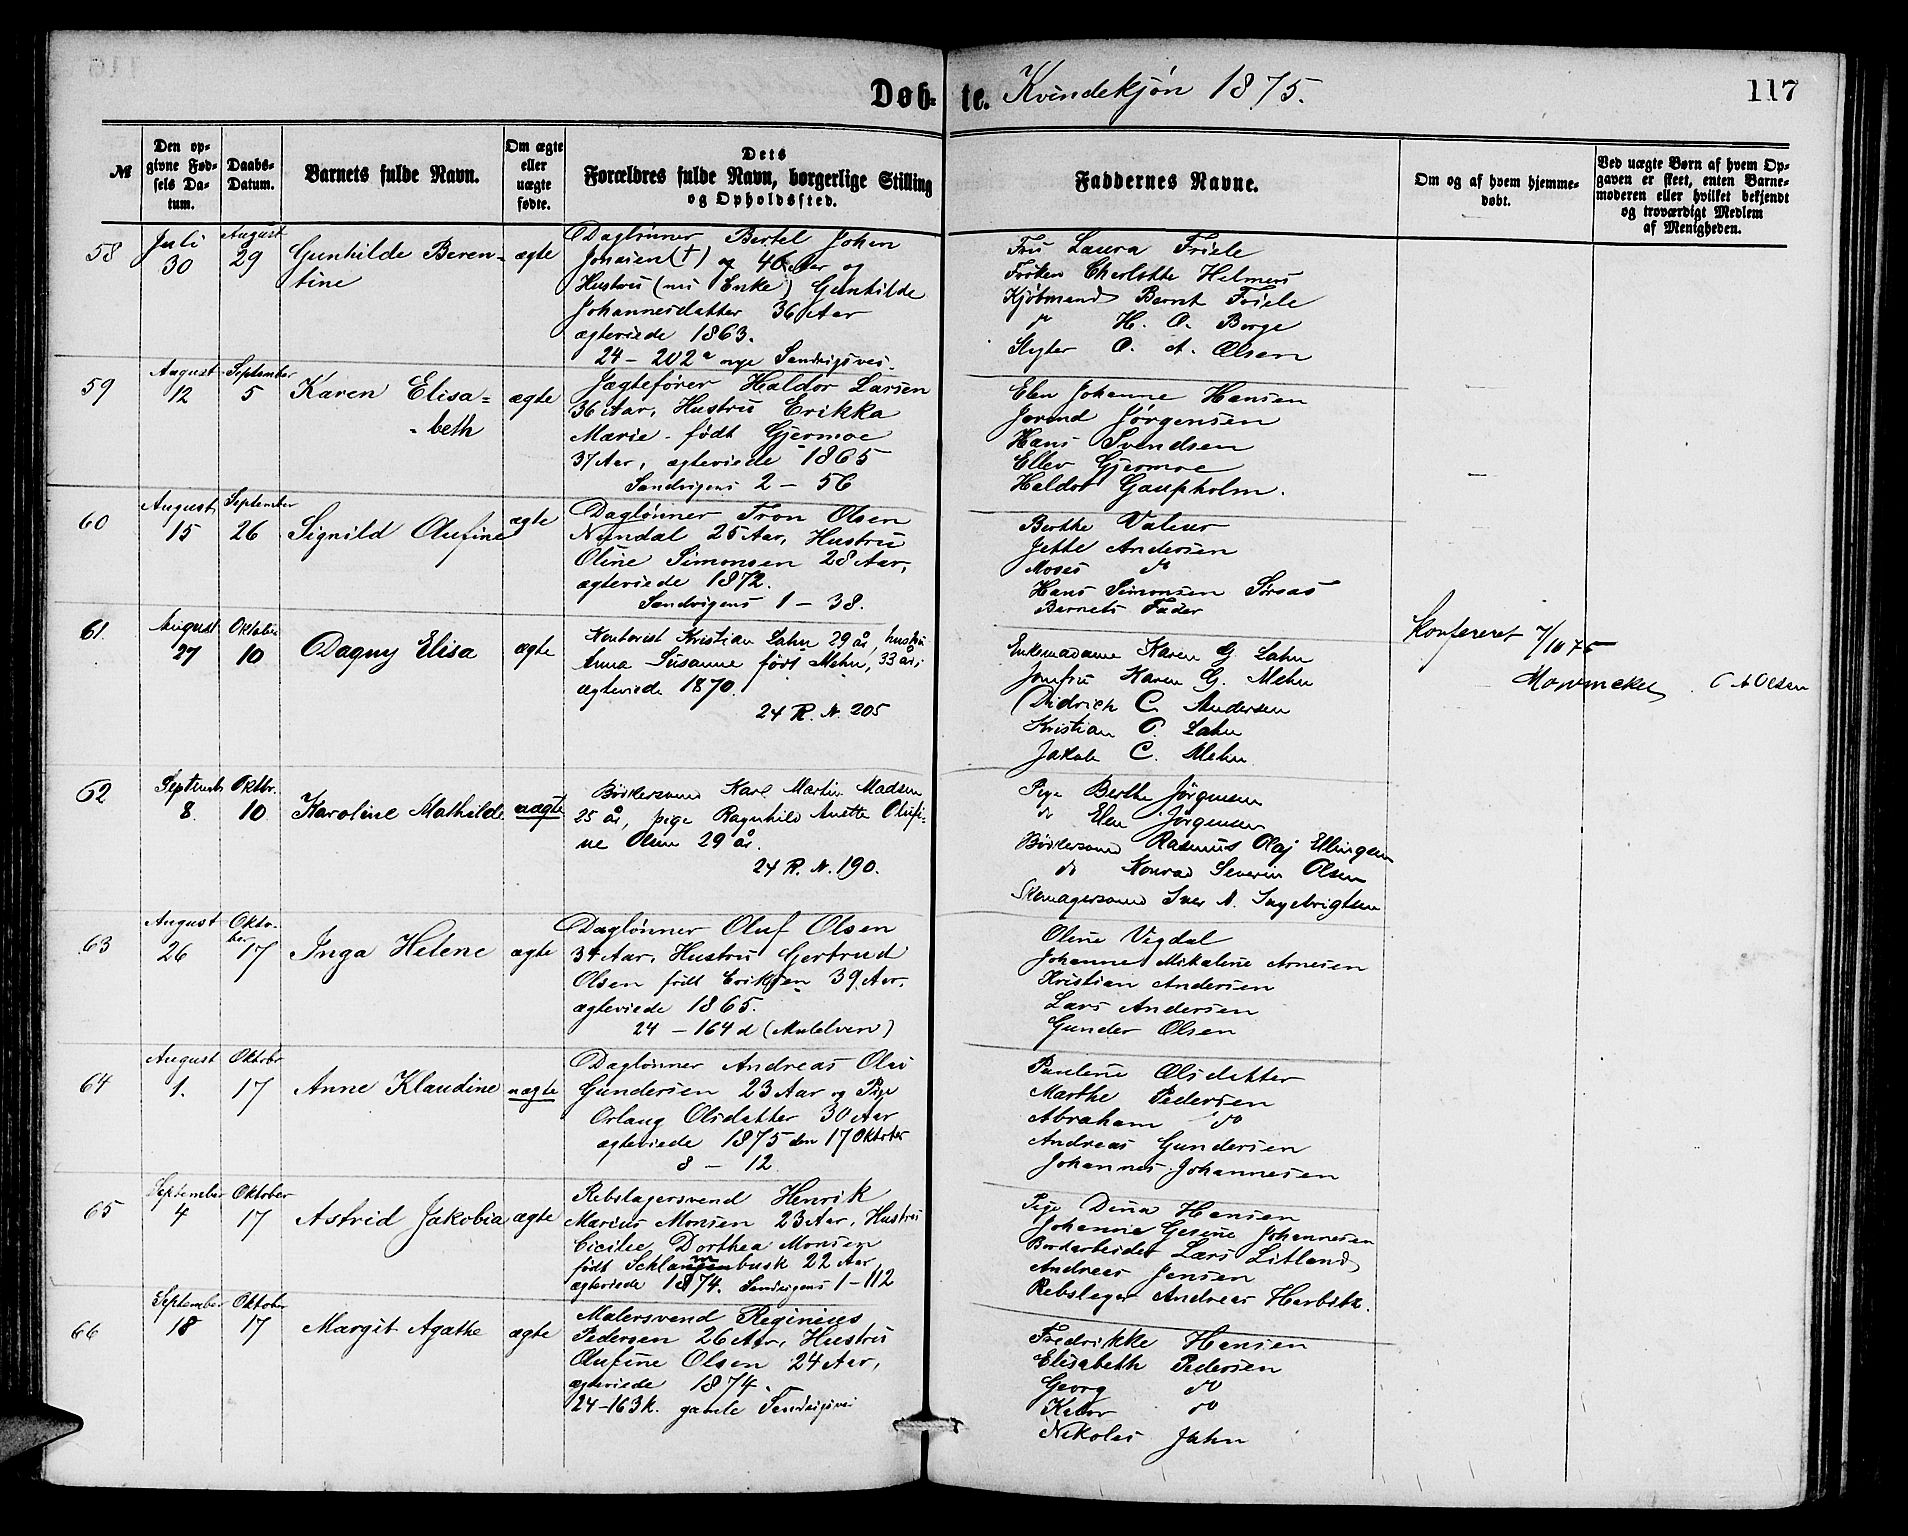 Døb-te. Kvindekjøn 1875.
117
№
Den op-
givne Fød-
sels Da-
tum.
Daabs-
Datum.
Barnets fulde Navn.
Om ægte
eller
uægte
fødte.
Dets
Forældres fulde Navn, borgerlige Stilling
og Opholdssted.
Faddernes Navne.
Om og af hvem hjemme-
døbt.
Ved uægte Børn af hvem Op-
gaven er skeet, enten Barne-
moderen eller hvilket bekjendt
og troværdigt Medlem
af Menigheden.
58
Juli
30
August
29
Gunhilde Beren-
tine
ægte
Daglønner Bertel Johan
Jonasen (†) 46 Aar og
Hustru (nu Enke) Gunhilde
Johannesdatter 36 Aar
ægteviede 1863.
24 - 202a nye Sandvigsvei.
Fru Laura Friele
Frøken Charlotte Helmers
Kjøbmand Bernt Friele
do H. O. Borge
Slagter O. A. Olsen
59
August
12
September
5
Karen Elisa-
beth
ægte
Jægtefører Haldor Larsen
36 Aar, Hustru Erikka
Marie født Gjermoe
37 Aar, ægteviede 1865
Sandvigens 2 - 56
Elen Johanne Hansen
Jørgensen
Hans Svendsen
Ellev Gjermoe
Haldor Gaupholm.
60
August
15
September
26
Signild Olufine
ægte
Daglønner Tron Olsen
Nundal 25 Aar, Hustru
Oline Simonsen 28 Aar,
ægteviede 1872.
Sandvigens 1 - 38.
Berthe Valeur
Jette Andersen
Moses do
Hans Simonsen
Barnets Fader
61
August
27
Oktober
10
Dagny Elisa
ægte
Kontorist Kristian Lahn 29 år, hustru
Anna Susanne født Mehn, 33 år,
ægteviede 1870.
24 R. N. 205
Enkemadame Karen G. Lahn
Jomfru Karen G. Mehn
Didrich C. Andersen
Kristian O. Lahn
Jakob C. Mehn
Konfereret 7/10 75
C A Olsen
62
Septemb
8
Oktbr.
10
Karoline Mathilde
uægte
Bødkersvend Karl Martin Madsen
25 år, pige Ragnhild Anette Olufi-
ne Olsen 29 år.
24 R. N. 190.
Pige Berthe Jørgensen
do Elen Jørgensen
Bødkersvend Rasmus Olaj Ellingsen
do Konrad Severin Olsen
Skomagersvend Iver N. Ingebrigtsen
63
August
26
Okto-
ber
17
Inga Helene
ægte
Daglønner Oluf Olsen
34 Aar, Hustru Gertrud
Olsen født Eriksen 39 Aar,
ægteviede 1865.
24 - 164 d (Mulelven)
Oline Vigdal
Johanne Mikaline Arnesen
Kristian Andersen
Lars Andersen
Gunder Olsen
64
August
1.
Oktobr
17
Anne Klaudine
uægte
Daglønner Andreas Olai
Gundersen 23 Aar og Pige
Orlaug Olsdatter 30 Aar
ægteviede 1875 den 17 Oktober
8 - 12
Pauline Olsdatter
Marthe Pedersen
Abraham do
Andreas Gundersen
Johannes Johannesen
65
September
4
Oktober
17
Astrid Jakobia
ægte
Rebslagersvend Henrik
Marius Monsen 23 Aar, Hustru
Cicilie Dorthea Monsen
født 22 Aar,
ægteviede 1874. Sandvigens 1 - 112
Pige Dina Hansen
Johanne Gesine Johannesen
Bordarbeider Lars Litland
Andreas Jensen
Rebslager Andreas Herbitz.
66
September
18
Oktober
17
Margit Agathe
ægte
Malersvend Reginius
Pedersen 26 Aar, Hustru
Olufine Olsen 24 Aar,
ægteviede 1874.
24-163k. gamle Sandvigsvei
Fredrikke Hansen
Elisabeth Pedersen
Georg do
do
Nikolai Jahn